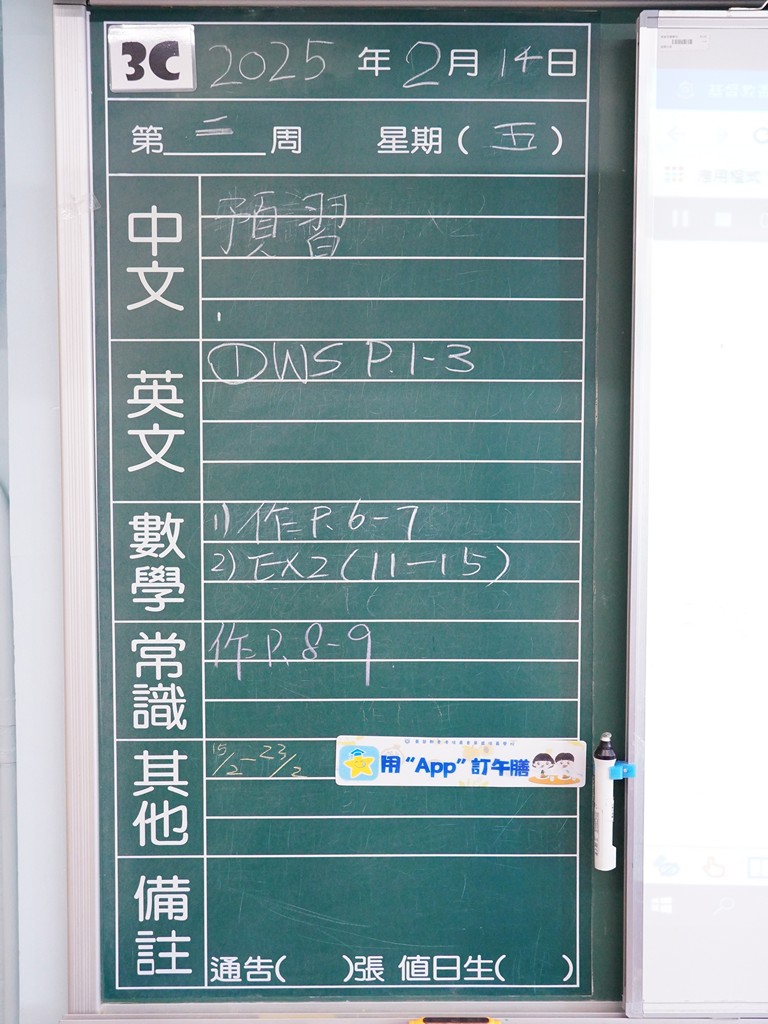 3C 2025 年 2 月 14 日
第 二 周 星期 ( 五 )
中文 預習
英文 ①WS P.1-3
數學 1) 作 P. 6-7
2) EX2 (11-15)
常識 作 P. 8-9
其他 15/2 - 23/2 用 “App” 訂午膳
備註 通告( )張 值日生( )